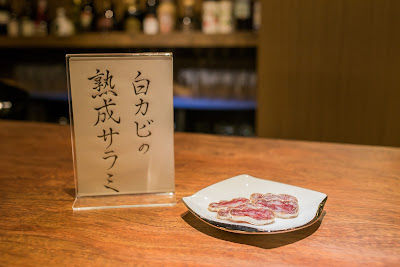 白カビの
熟成サラミ